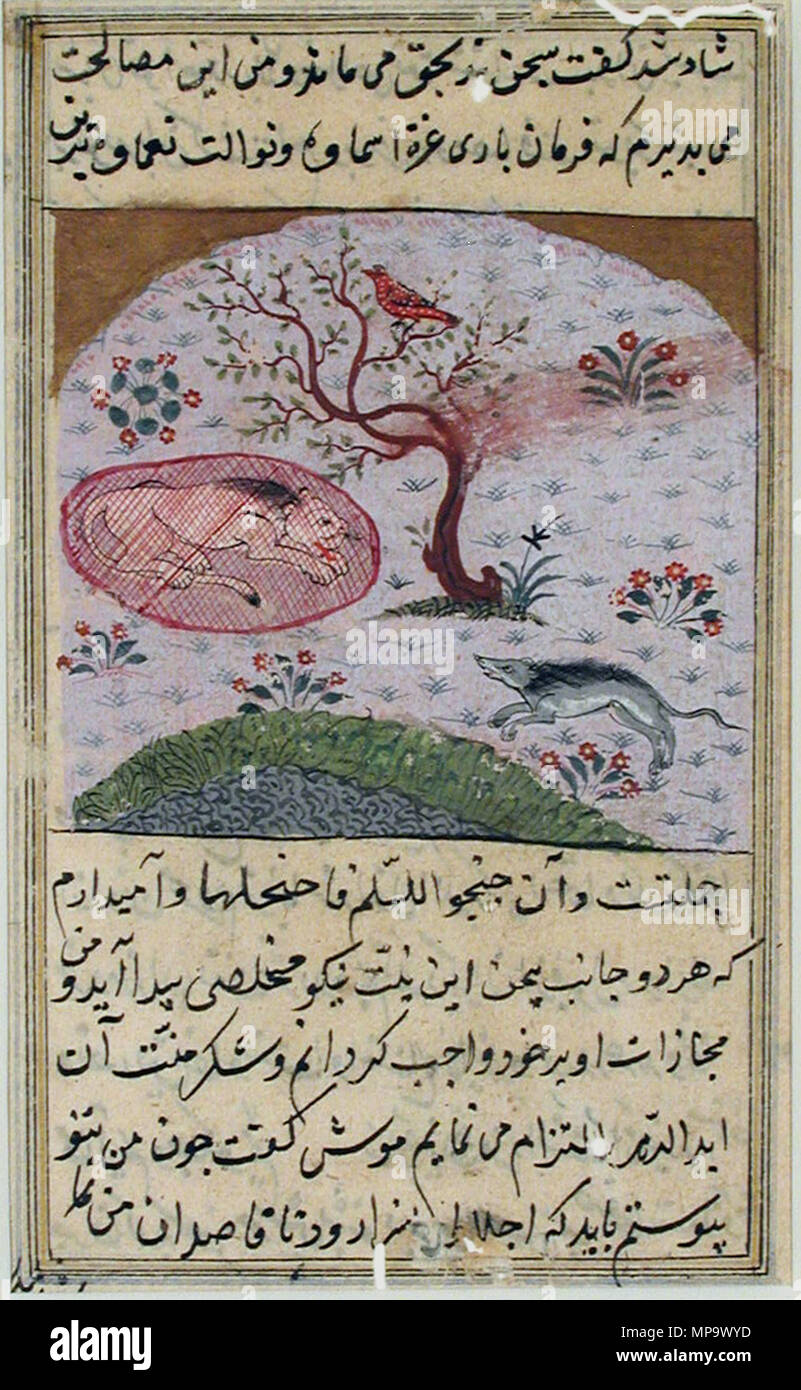 شاد شد گفت سخن تو بحق می ماند و من این مصالحت
می بدیرم که فرمان باری عزة اسماوه و توالت نعماوه برین
جملتست وآن جنحوا للسّلم فاجنحلها وامیدارم
که هر دو جانب بیمن این نیّت نیکو مخلصی پیدا آید و من
مجازات او بر خود واجب کردانم و شکر منّت آن
ابد الدّهر التزام می نمایم موش گفت جون من بتو
پیوستم باید که اجلال من روز تا قاصدان من
alamy
alamy
Image ID: MP9WYD
www.alamy.com